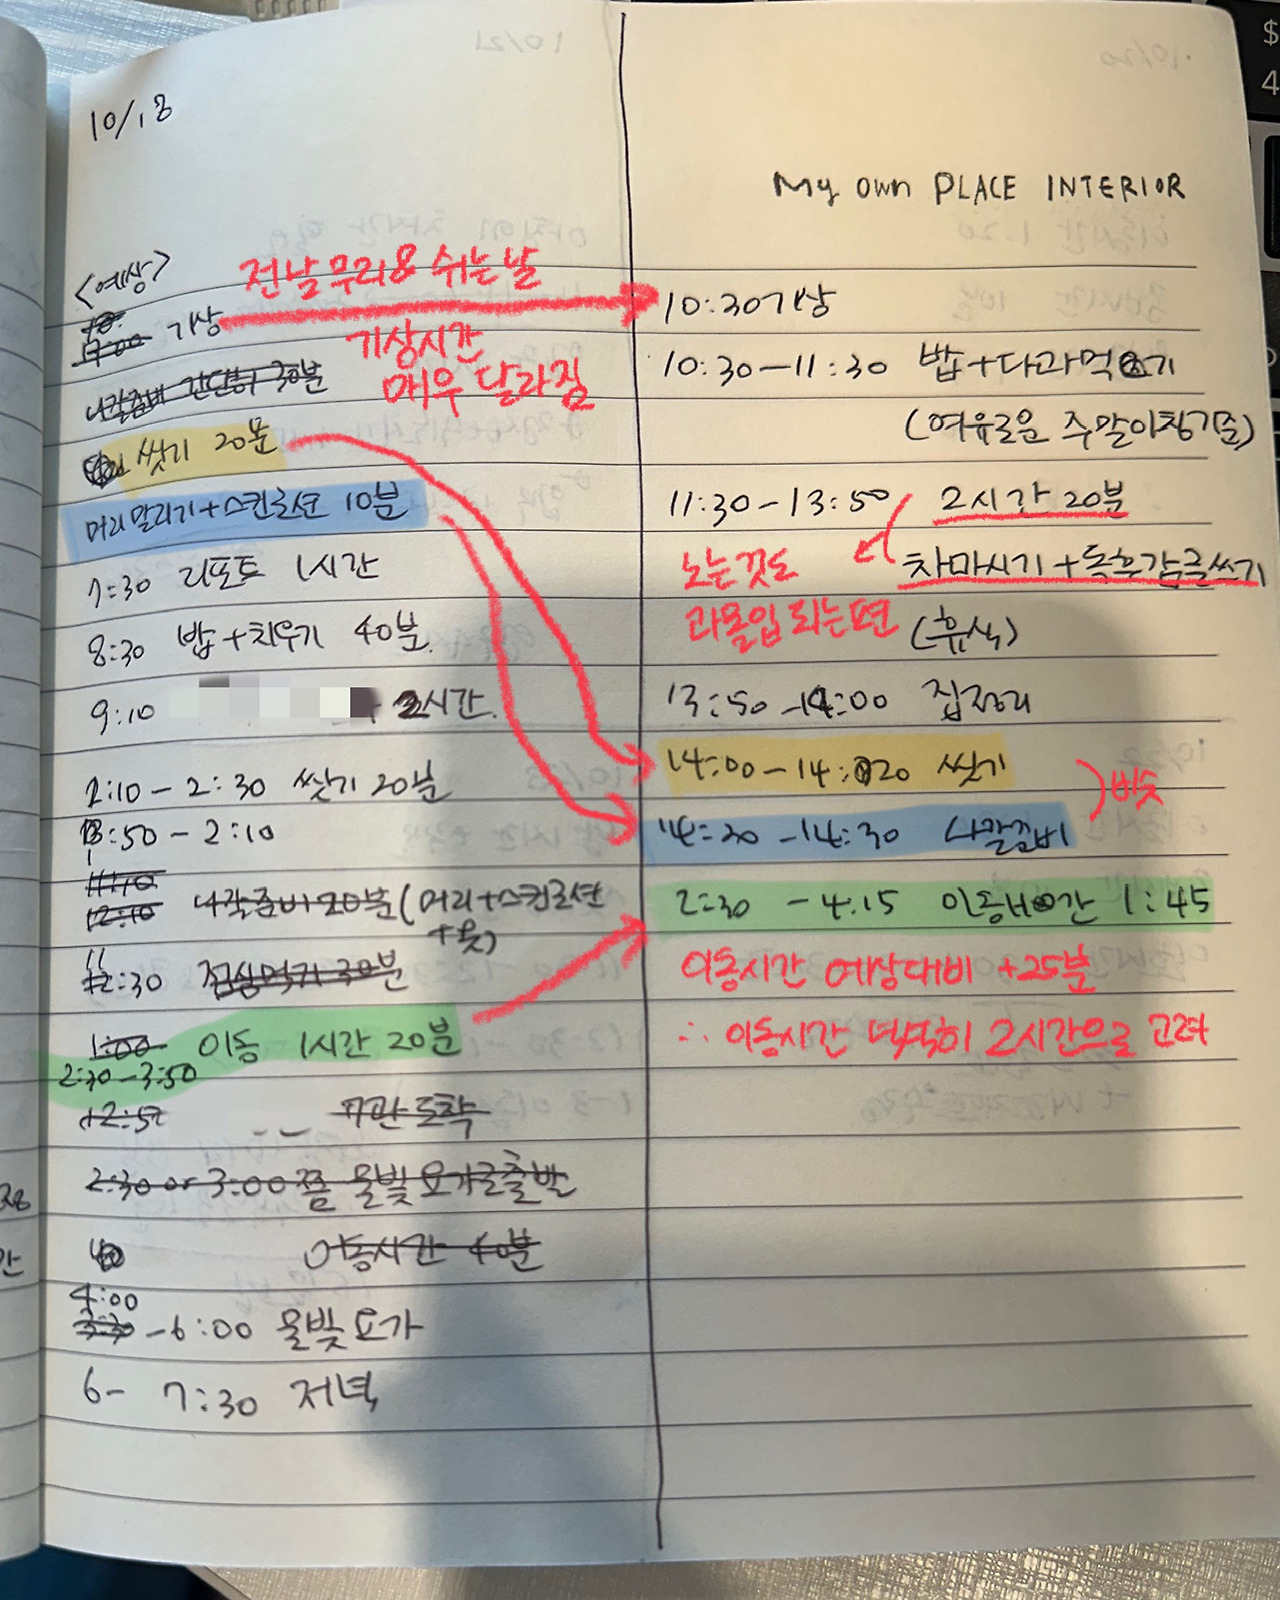 10/18
<예상>
7:00 기상
나갈준비 간단히 30분
씻기 20분
머리말리기+스킨로션 10분
7:30 리포트 1시간
8:30 밥+치우기 40분.
9:10 2시간.
2:10-2:30 씻기 20분
13:50-2:10
11:10
12:10 나갈준비 20분(머리+스킨로션
+옷)
12:30 점심먹기 30분
1:00 이동 1시간 20분
2:30-3:50
도착
2:30 or 3:00쯤 올빛요가로출발
이동시간 40분
4:00
3:30-6:00 올빛요가
6- 7:30 저녁
전날무리&쉬는날
기상시간
매우 달라짐
My own PLACE INTERIOR
10:30기상
10:30-11:30 밥+다과먹기
(여유로운 주말아침기준)
11:30-13:50 2시간 20분
차마시기+독후감글쓰기
(휴식)
노는것도
과몰입 되는편
13:50-14:00 집정리
14:00-14:20 씻기
14:20-14:30 나갈준비
비슷
2:30-4:15 이동시간 1:45
이동시간 예상대비 +25분
∴ 이동시간 넉넉히 2시간으로 고려